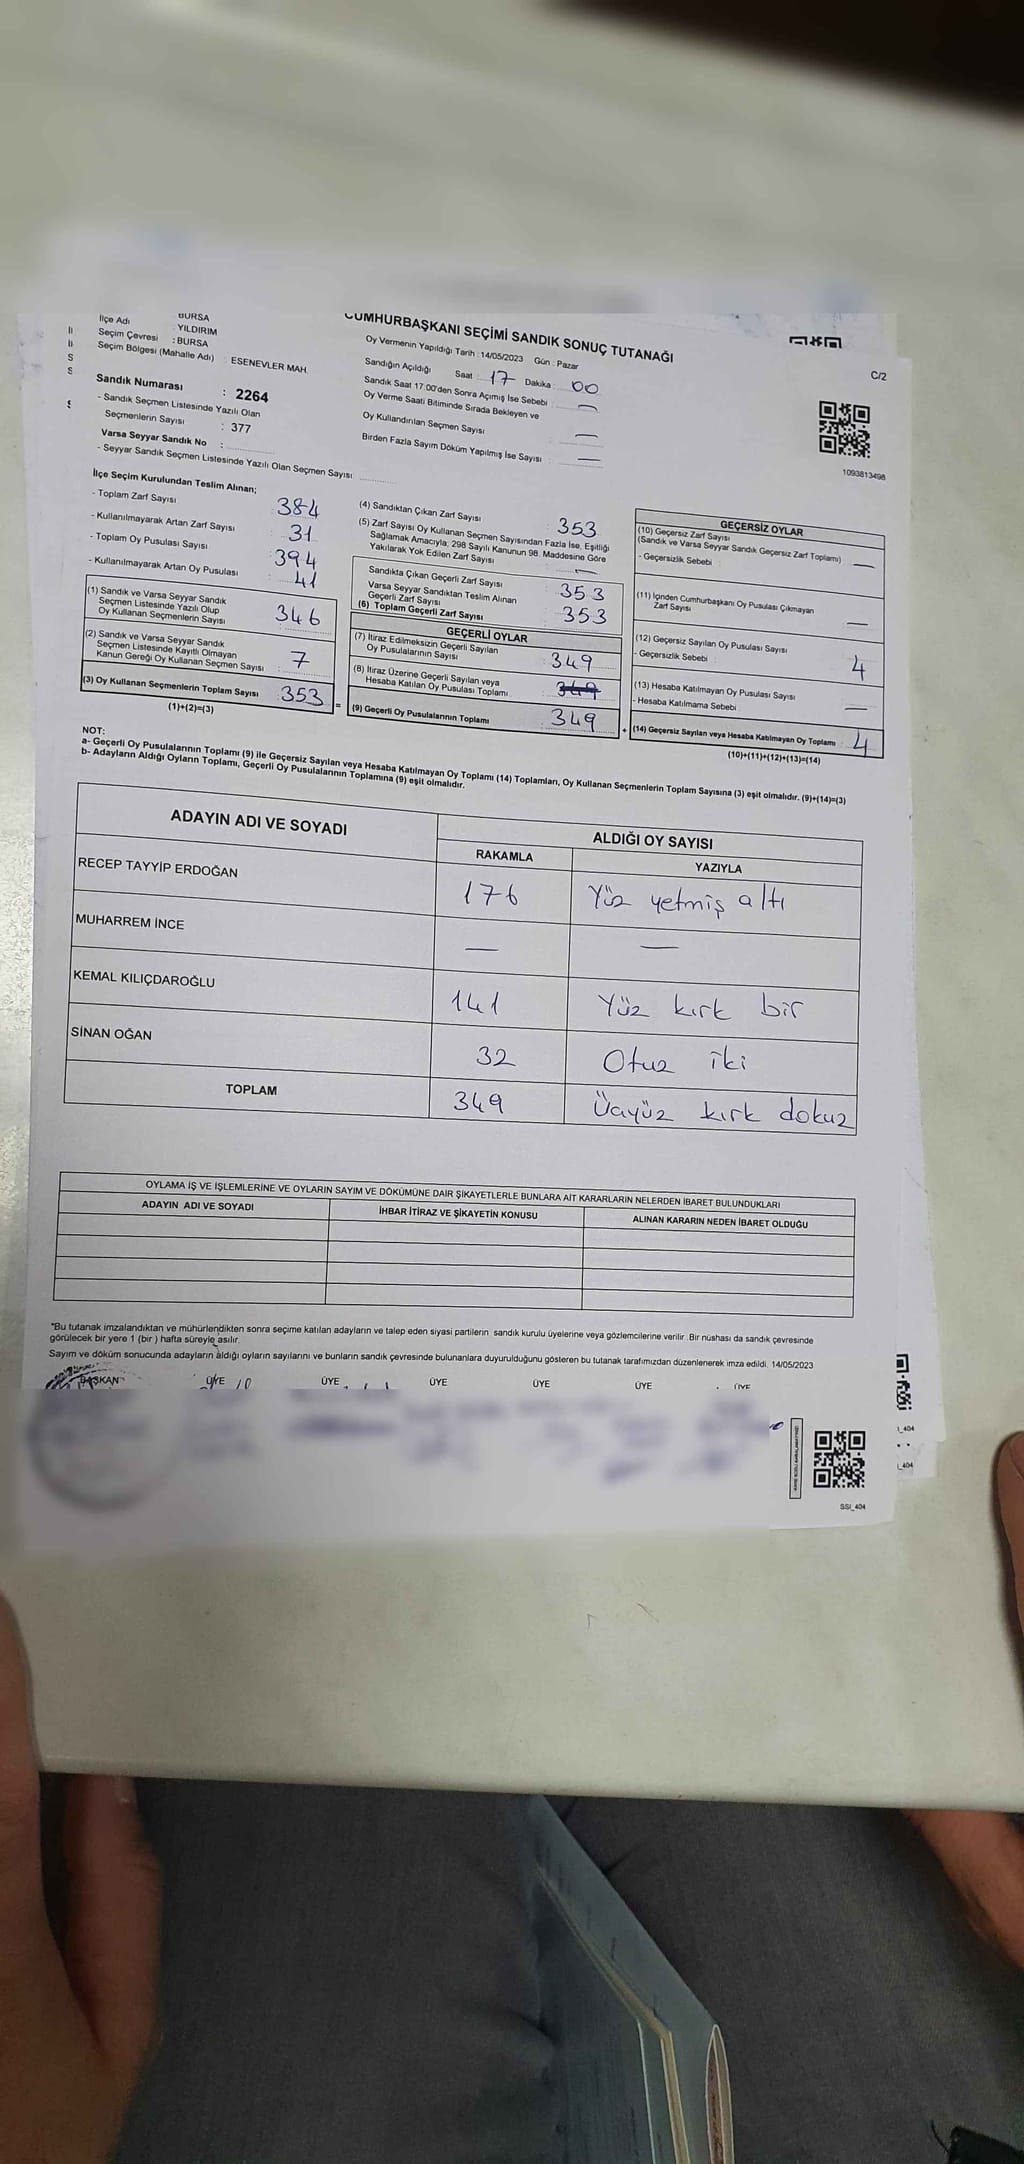 BURSA
İlçe Adı : YILDIRIM
Seçim Çevresi : BURSA
Seçim Bölgesi (Mahalle Adı) : ESENEVLER MAH.
CUMHURBAŞKANI SEÇİMİ SANDIK SONUÇ TUTANAĞI
C/2
Oy Vermenin Yapıldığı Tarih : 14/05/2023 Gün : Pazar
Sandığın Açıldığı Saat : 17 Dakika : 00
Sandık Saat 17:00'den Sonra Açımış İse Sebebi : —
Oy Verme Saati Bitiminde Sırada Bekleyen ve
Oy Kullandırılan Seçmen Sayısı : —
Birden Fazla Sayım Döküm Yapılmış İse Sayısı : —
1093813498
Sandık Numarası : 2264
- Sandık Seçmen Listesinde Yazılı Olan
Seçmenlerin Sayısı : 377
Varsa Seyyar Sandık No :
- Seyyar Sandık Seçmen Listesinde Yazılı Olan Seçmen Sayısı :
İlçe Seçim Kurulundan Teslim Alınan;
- Toplam Zarf Sayısı : 384
- Kullanılmayarak Artan Zarf Sayısı : 31
- Toplam Oy Pusulası Sayısı : 394
- Kullanılmayarak Artan Oy Pusulası : 41
(1) Sandık ve Varsa Seyyar Sandık
Seçmen Listesinde Yazılı Olup
Oy Kullanan Seçmenlerin Sayısı : 346
(2) Sandık ve Varsa Seyyar Sandık
Seçmen Listesinde Kayıtlı Olmayan
Kanun Gereği Oy Kullanan Seçmen Sayısı : 7
(3) Oy Kullanan Seçmenlerin Toplam Sayısı : 353
(1)+(2)=(3)
(4) Sandıktan Çıkan Zarf Sayısı : 353
(5) Zarf Sayısı Oy Kullanan Seçmen Sayısından Fazla İse, Eşitliği
Sağlamak Amacıyla, 298 Sayılı Kanunun 98. Maddesine Göre
Yakılarak Yok Edilen Zarf Sayısı : —
Sandıkta Çıkan Geçerli Zarf Sayısı : 353
Varsa Seyyar Sandıktan Teslim Alınan
Geçerli Zarf Sayısı
(6) Toplam Geçerli Zarf Sayısı : 353
GEÇERLİ OYLAR
(7) İtiraz Edilmeksizin Geçerli Sayılan
Oy Pusulalarının Sayısı : 349
(8) İtiraz Üzerine Geçerli Sayılan veya
Hesaba Katılan Oy Pusulası Toplamı : 349
(9) Geçerli Oy Pusulalarının Toplamı : 349
GEÇERSİZ OYLAR
(10) Geçersiz Zarf Sayısı
(Sandık ve Varsa Seyyar Sandık Geçersiz Zarf Toplamı) —
- Geçersizlik Sebebi :
(11) İçinden Cumhurbaşkanı Oy Pusulası Çıkmayan
Zarf Sayısı —
(12) Geçersiz Sayılan Oy Pusulası Sayısı 4
- Geçersizlik Sebebi :
(13) Hesaba Katılmayan Oy Pusulası Sayısı —
- Hesaba Katılmama Sebebi :
(14) Geçersiz Sayılan veya Hesaba Katılmayan Oy Toplamı : 4
(10)+(11)+(12)+(13)=(14)
NOT:
a- Geçerli Oy Pusulalarının Toplamı (9) ile Geçersiz Sayılan veya Hesaba Katılmayan Oy Toplamı (14) Toplamları, Oy Kullanan Seçmenlerin Toplam Sayısına (3) eşit olmalıdır. (9)+(14)=(3)
b- Adayların Aldığı Oyların Toplamı, Geçerli Oy Pusulalarının Toplamına (9) eşit olmalıdır.
ADAYIN ADI VE SOYADI
ALDIĞI OY SAYISI
RAKAMLA YAZIYLA
RECEP TAYYİP ERDOĞAN 176 Yüz yetmiş altı
MUHARREM İNCE — —
KEMAL KILIÇDAROĞLU 141 Yüz kırk bir
SİNAN OĞAN 32 Otuz iki
TOPLAM 349 Üçyüz kırk dokuz
OYLAMA İŞ VE İŞLEMLERİNE VE OYLARIN SAYIM VE DÖKÜMÜNE DAİR ŞİKAYETLERLE BUNLARA AİT KARARLARIN NELERDEN İBARET BULUNDUKLARI
ADAYIN ADI VE SOYADI İHBAR İTİRAZ VE ŞİKAYETİN KONUSU ALINAN KARARIN NEDEN İBARET OLDUĞU
*Bu tutanak imzalandıktan ve mühürlendikten sonra seçime katılan adayların ve talep eden siyasi partilerin sandık kurulu üyelerine veya gözlemcilerine verilir. Bir nüshası da sandık çevresinde
görülecek bir yere 1 (bir) hafta süreyle asılır.
Sayım ve döküm sonucunda adayların aldığı oyların sayılarını ve bunların sandık çevresinde bulunanlara duyurulduğunu gösteren bu tutanak tarafımızdan düzenlenerek imza edildi. 14/05/2023
BAŞKAN ÜYE ÜYE ÜYE ÜYE ÜYE ÜYE
SSİ_404